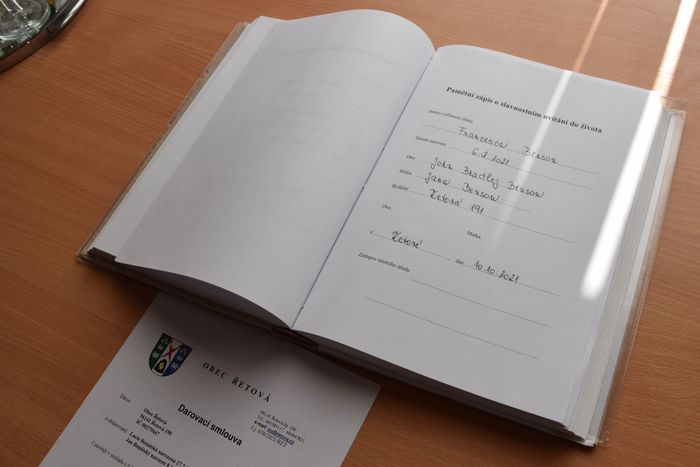 Pamětní zápis o slavnostním uvítání do života
Jméno a příjmení dítěte
Francesca Benson
Datum narození 6.8.2021
Otec John Bradley Benson
Matka Jana Benson
Bydliště Řetová 191
Otec Matka
V Řetové dne 10.10.2021
Zástupce místního úřadu
OBEC ŘETOVÁ
Darovací smlouva
Dárce
Obec Řetová
56141 Řetová 190
IČ 00279447
561 41 Řetová čp. 190
a obdarovaný: